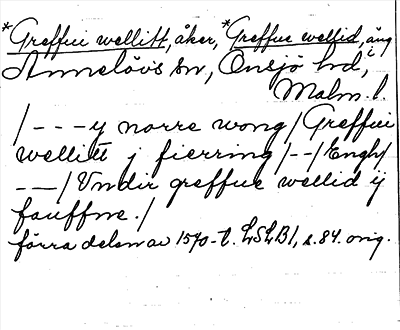 *Greffue wellitt, åker, *Greffue wellid, äng i
Annelövs sn, Onsjö hd,
Malm. l.
/---y norre wong/Greffue
wellitt j fierring/--/Engh/
---/Vndir greffue wellid ij
fauffne./
förra delen av 1570-t. LSLB1, s. 84. orig.